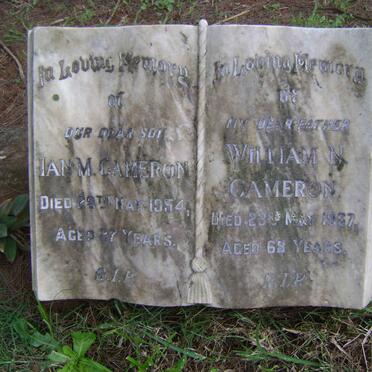 In Loving Memory
of
OUR DEAR SON
IAN M. CAMERON
DIED MAY 1954,
AGED YEARS.
R.I.P.
In Loving Memory
of
MY DEAR FATHER
WILLIAM N.
CAMERON
DIED 23RD MAY 1937,
AGED 68 YEARS.
R.I.P.